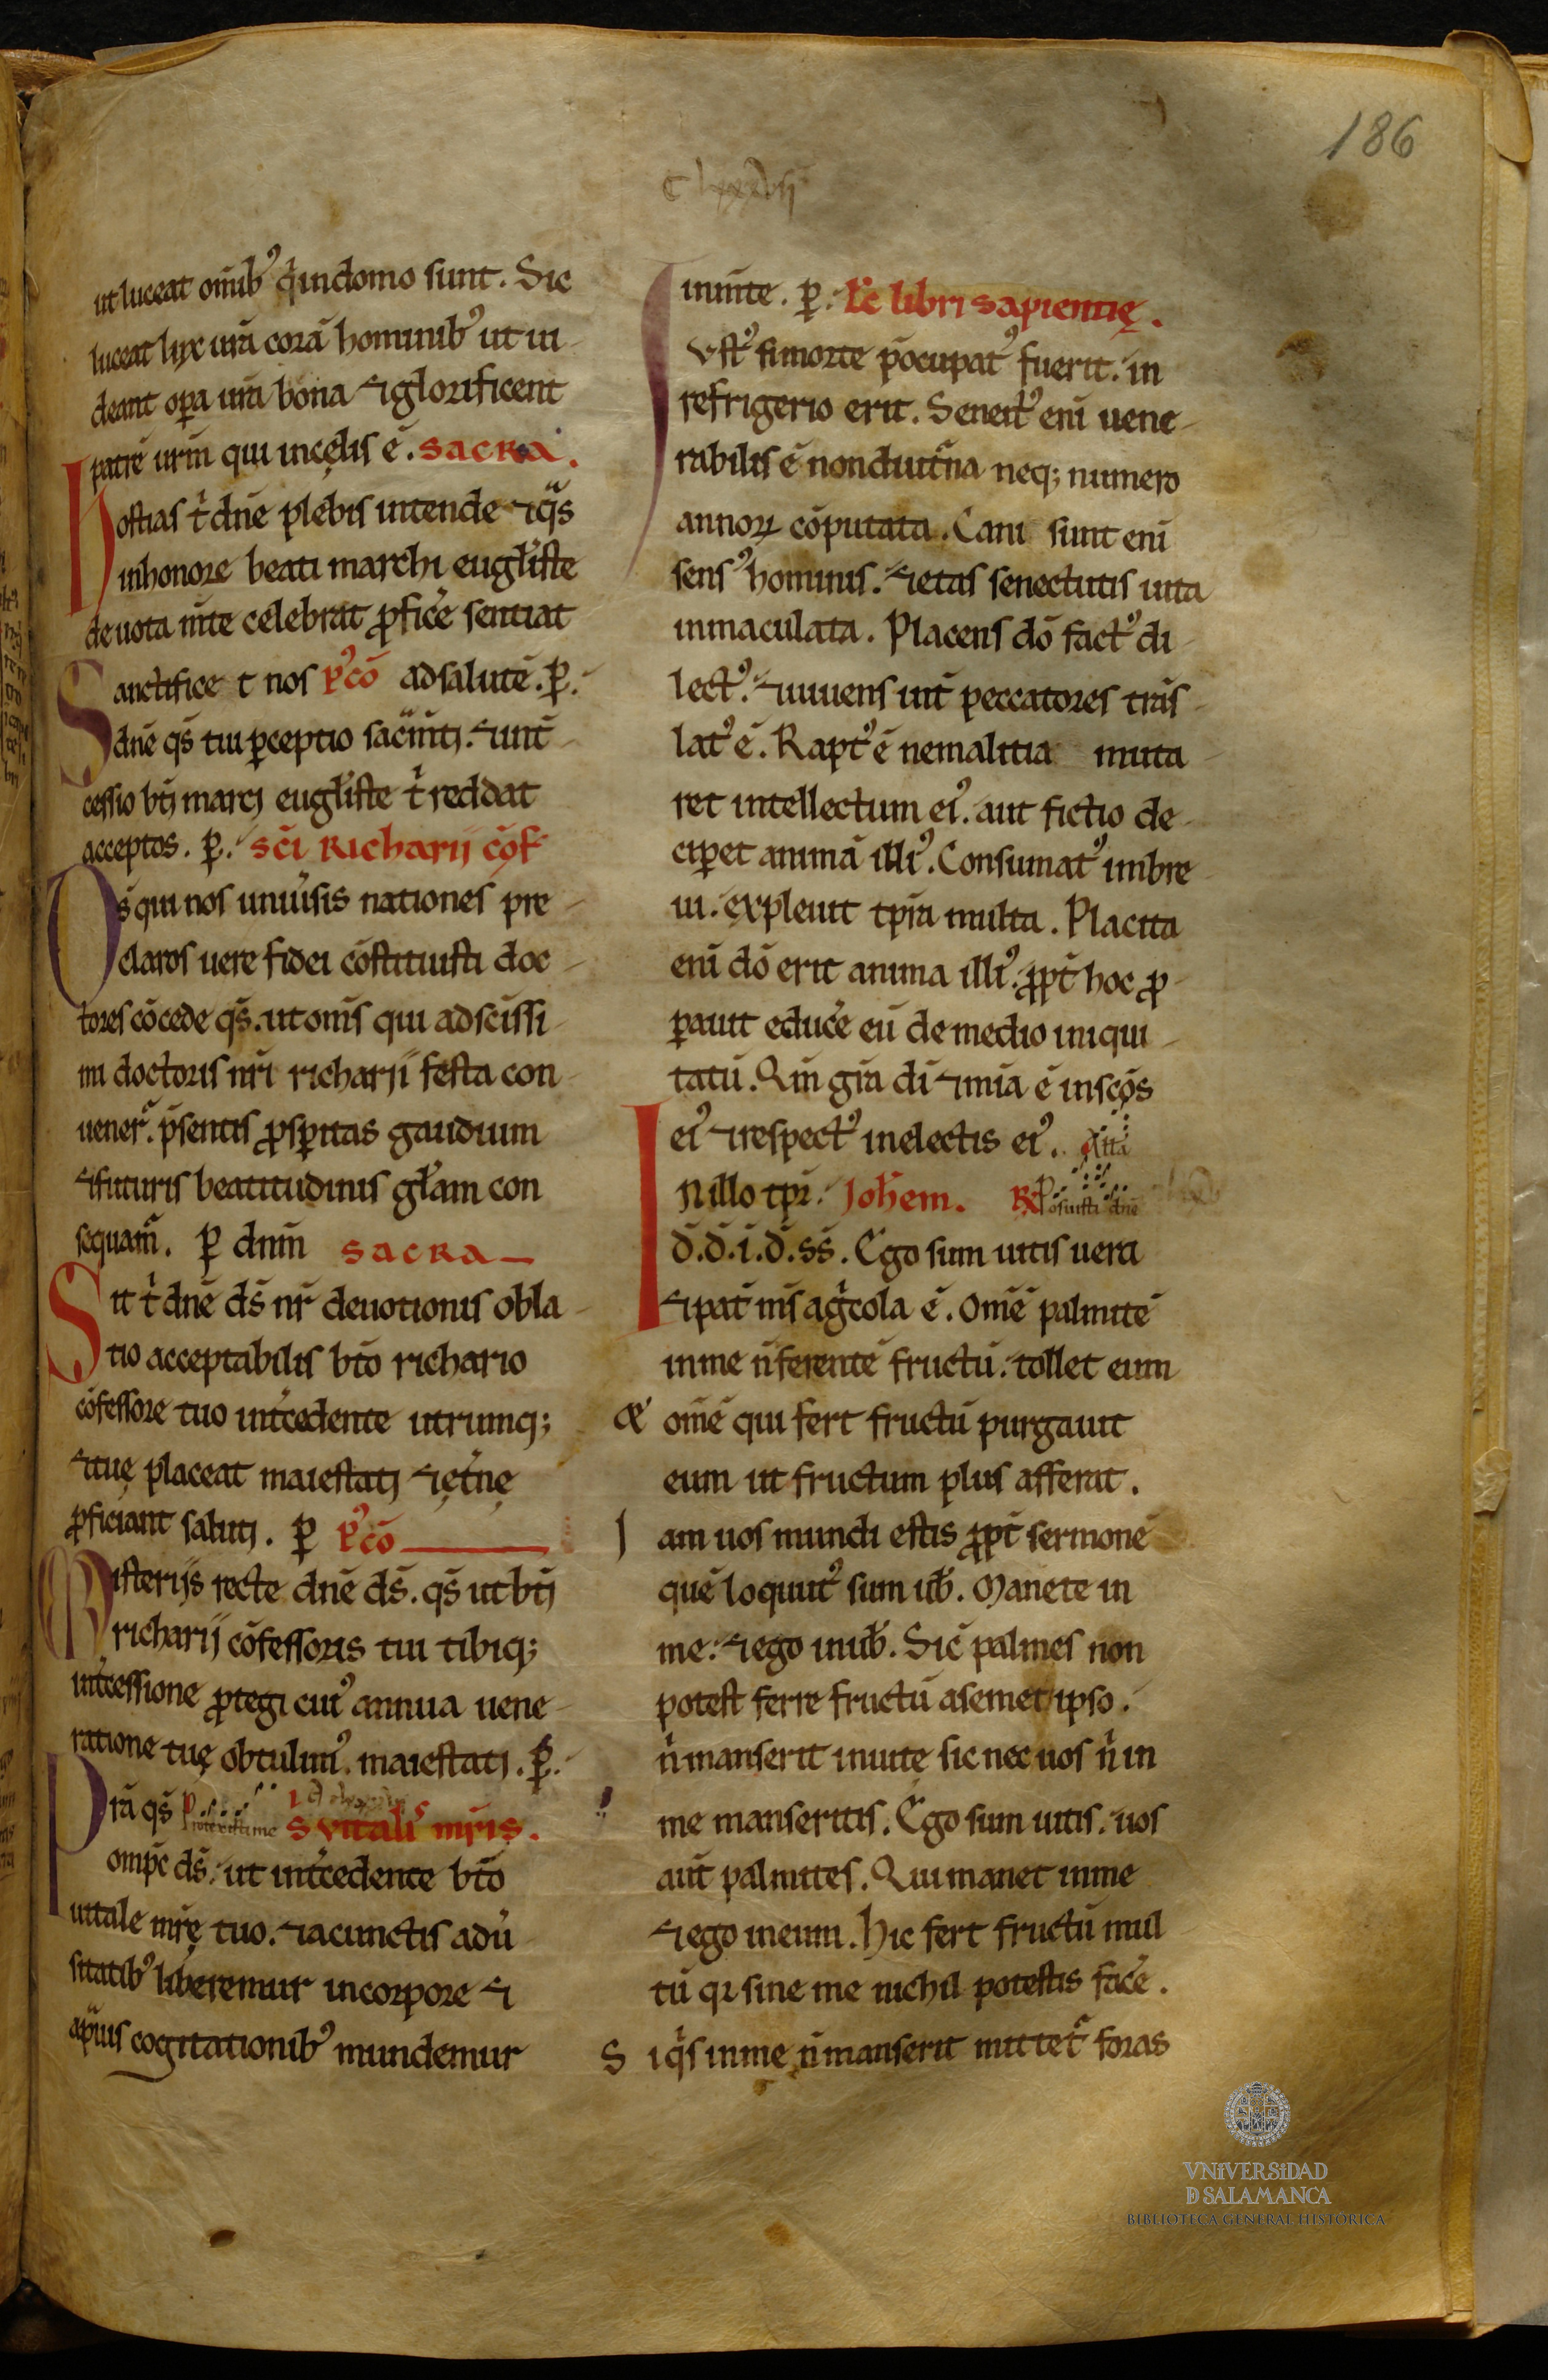 186
Clxxxvii
ut luceat om̄ib᷒ q̍ indomo sunt. Sic
luceat lux ur̄a corā hominib᷒ ut ui
deant oꝑa ur̄a bona ⁊ glorificent
patrē ur̄m qui incęlis ē. sacra.
Hostias t̍ dn̄e plebis intende ⁊ q̄s
inhonore beati marchi eugl̄iste
deuota m̄te celebrat ꝓfic̄e sentiat
Sanctifice t nos p᷒cō ad salutē. ꝑ.
dn̄e q̄s tui ꝑceptio sac̄mtj. ⁊ int̄
cessio bt̄j marcj eugl̄iste t̍ reddat
acceptos. ꝑ. sc̄i Richarij cōf
Ds̄ qui nos uniūsis nationes pre
claros uere fidei cōstituisti doc
tores cōcede q̄s. ut om̄s qui ad sc̄issi
mi doctoris nr̄i richarij festa con
uener̄. p̄sentis ꝓsꝑitas gaudium
⁊ futuris beatitudinis gl̄am con
sequam̄. ꝑ dnm̄ sacra
Sit t̍ dn̄e ds̄ nr̄ deuotionis obla
tio acceptabilis bt̄o richario
cōfessore tuo int̄cedente utrumq;
⁊ tuę placeat maiestatj ⁊ ęt̄nę
ꝓficiant salutj. ꝑ p᷒cō
Misterijs recte dn̄e ds̄. q̄s ut bt̄j
richarij cōfessoris tui tibiq;
int̄cessione ꝓtegi cui᷒ annua uene
ratione tuę obtulim᷒. maiestatj. ꝑ.
Prā q̄s Protexisti me S vitalis mr̄is.
omp̄c ds̄. ut int̄cedente bt̄o
uitale mr̄ę tuo. ⁊ acunctis adū
sitatib᷒ liberemur incorpore ⁊
aprauis cogitationib᷒ mundemur
inm̄te. ꝑ. Lc̄ libri sapientię.
Iust᷒ si morte p̄ocupat᷒ fuerit. in
refrigerio erit. Senect᷒ enī uene
rabilis ē non diut̄na neq; numero
annoꝝ cōputata. Cani sunt enī
sens᷒ hominis. ⁊ etas senectutis uita
inmaculata. Placens dō fact᷒ di
lect᷒. ⁊ uiuens int̄ peccatores trās
lat᷒ ē. Rapt᷒ ē ne malitia muta
ret intellectum ei᷒. aut fictio de
ciꝑet animā illi᷒. Consumat᷒ inbre
ui. expleuit tp̄ra multa. Placita
enī dō erit anima illi᷒. ꝓpt̄ hoc ꝓ
ꝑauit educ̄e eū de medio iniqui
tatū. Qm̄ gr̄a dī ⁊ mīa ē insc̄os
ei᷒ ⁊ respect᷒ inelectis ei᷒. Alla
In illo tpr̄. Joh̄em. R Posuisti dn̄e
d̄. d̄. i. d̄. ss̄. Ego sum uitis uera
⁊ pat̄ m̄s ag̍cola ē. Om̄ē palmitē
inme n̄ ferentē fructū: tollet eum
& om̄ē qui fert fructū purgauit
eum ut fructum plus afferat.
Iam uos mundi estis ꝓpt̄ sermonē
quē loquut᷒ sum uƀ. Manete in
me: ⁊ ego inuƀ. Sic̄ palmes non
potest ferre fructū asemet ipso.
n̍ manserit inuite sic nec uos n̍ in
me manseritis. Ego sum uitis. uos
aut̄ palmites. Qui manet inme
⁊ ego ineum. Hic fert fructū mul
tū qr sine me nichil potestis fac̄e.
Si q̍s inme n̄ manserit mittet̄ foras
VNiVERSiDAD
D SALAMANCA
BIBLIOTECA GENERAL HISTÓRICA